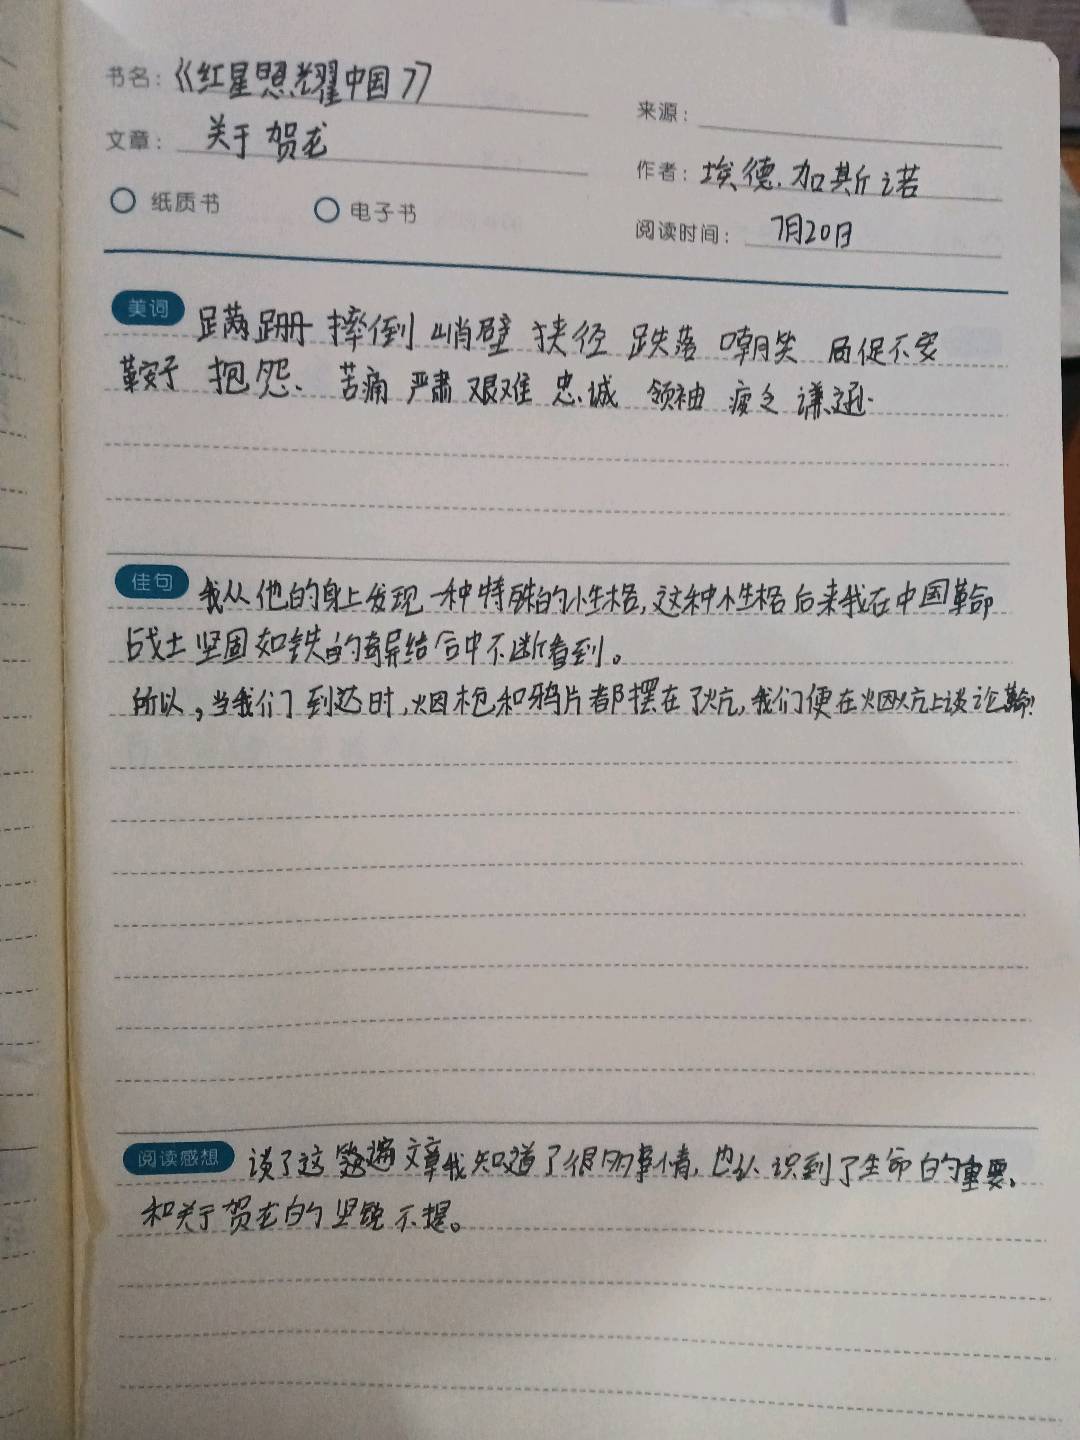 书名：《红星照耀中国》
文章：关于贺龙
纸质书 电子书
来源：
作者：埃德.加斯诺
阅读时间：7月20日
美词 蹒跚 摔倒 峭壁 狭径 跌落 嘲笑 局促不安
鞍子 抱怨、苦痛 严肃 艰难 忠诚 领袖 疲乏 谦逊.
佳句 我从他的身上发现一种特殊的性格,这种性格后来我在中国革命
战士坚固如铁的结合中不断看到。
所以,当我们到达时,烟枪和鸦片都摆在了炕,我们便在烟炕上谈论革命!
阅读感想 读了这遍文章我知道了很多事情,也认识到了生命的重要,
和关于贺龙的坚不提。